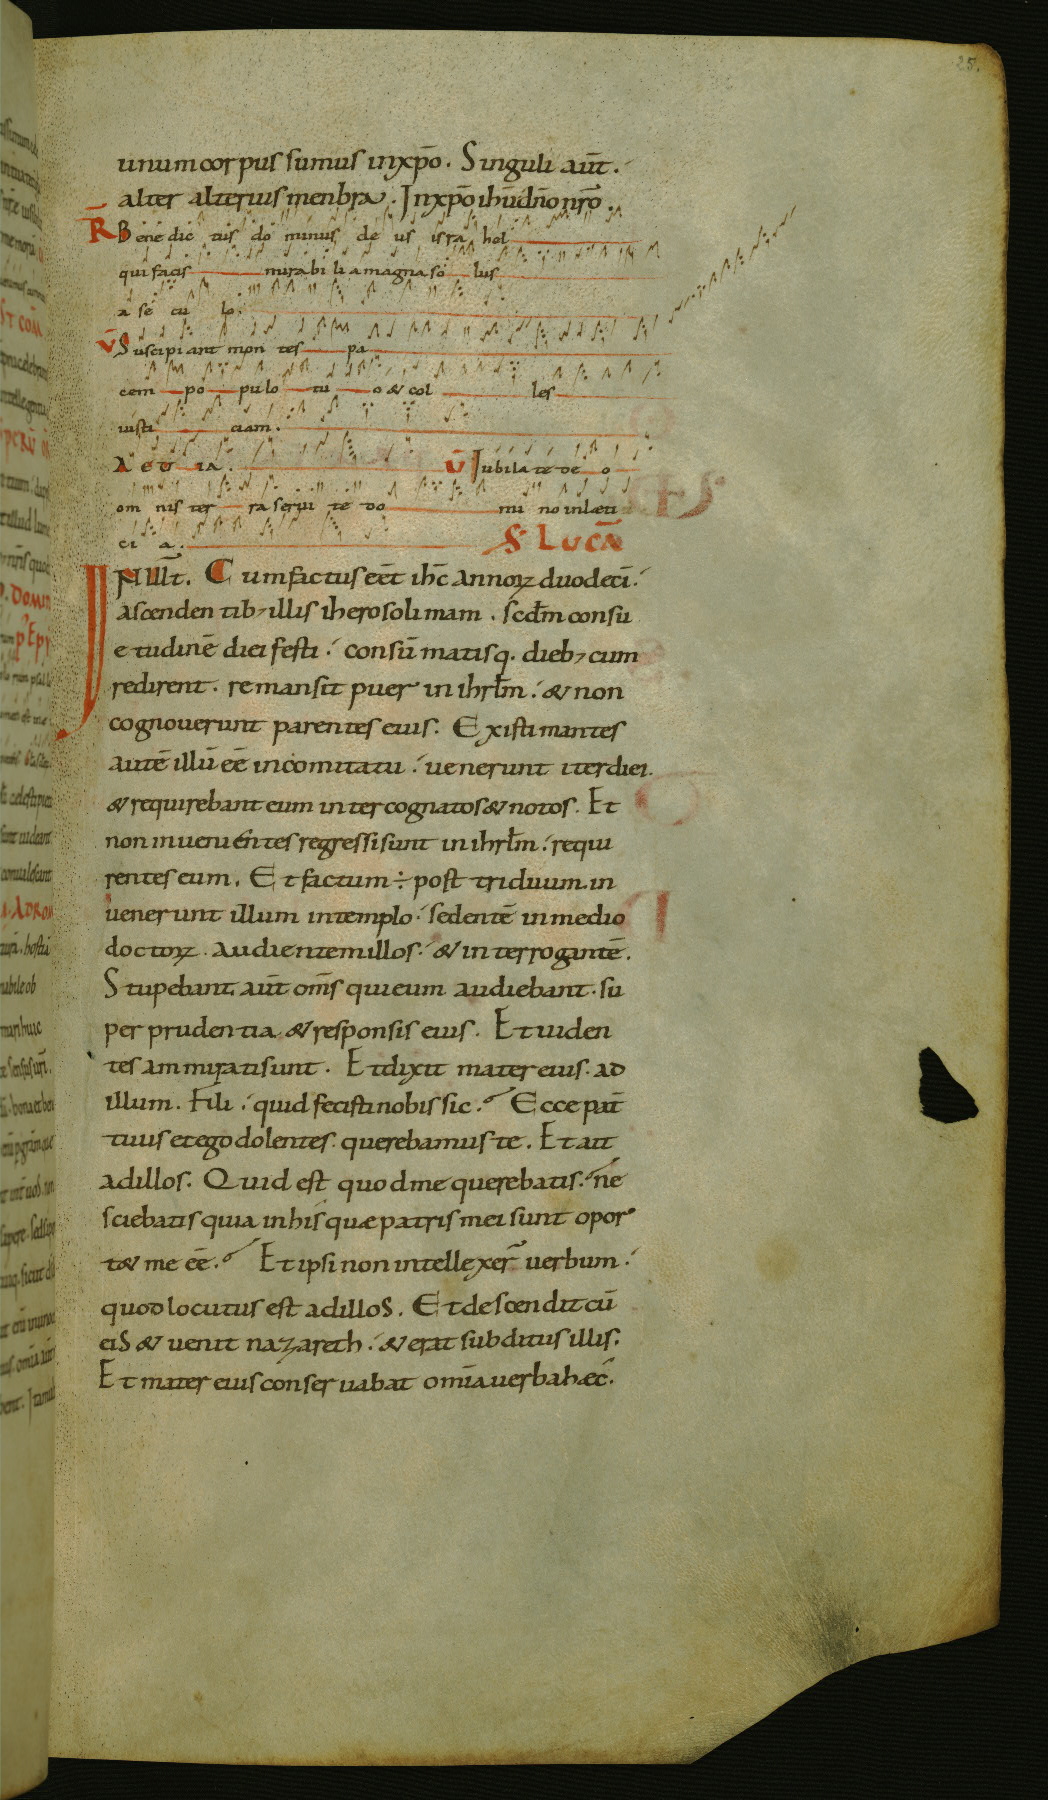 25.
unum corpus sumus in xp̄o. Singuli aut̄.
alter alterius menbra. In xp̄o ihū dn̄o nr̄o.
R̄ Benedictus dominus deus israhel
qui facis mirabilia magna solus
a seculo.
V̄ Suscipiant montes pa
cem populo tuo & colles
iusti ciam.
A e u ia. V̄ Iubilate deo
omnis terra seruite domino in læti
cia. S LUCĀ
IN ill̄t. Cum factus eēt ihc̄ annoꝝ duodeci᷑.
ascendentib; illis iherosolimam. scdm̄ consu
etudinē diei festi. consūmatisq. dieb; cum
redirent. remansit puer in ihrlm̄. & non
cognouerunt parentes eius. Existimantes
autē illū eē in comitatu. uenerunt iter diei.
& requirebant eum inter cognatos & notos. Et
non inuenientes regressi sunt in ihrlm̄. requi
rentes eum. Et factum ÷ post triduum. in
uenerunt illum in templo. sedentē in medio
doctoꝝ. audientem illos. & interrogantē.
Stupebant aut̄ om̄s qui eum audiebant. su
per prudentia & responsis eius. Et uiden
tes ammirati sunt. Et dixit mater eius ad
illum. Fili. quid fecisti nobis sic. Ecce pat̄
tuus et ego dolentes querebamus te. Et ait
ad illos. Quid est quod me querebatis. ne
sciebatis quia in his quæ patris mei sunt opor
t& me eē. Et ipsi non intellexer̄ uerbum.
quod locutus est ad illos. Et descendit cū
eis & uenit nazareth. & erat subditus illis.
Et mater eius conseruabat omīa uerba hæc.